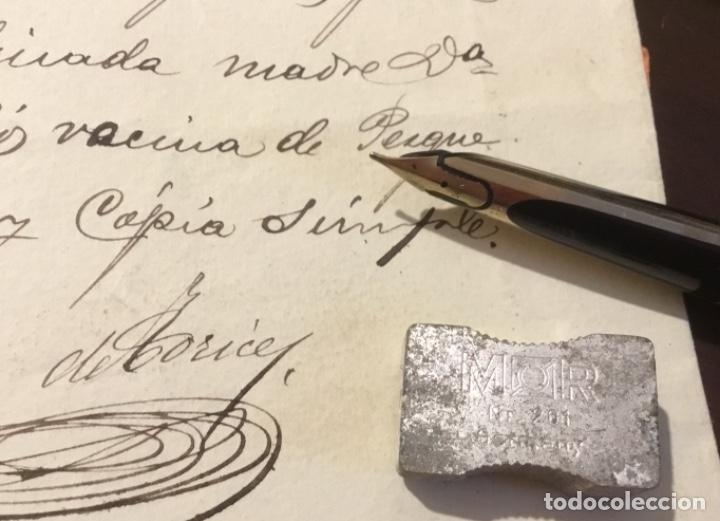 madre Dª
vacina de Perque
y Copia Simple.
de Torices,
MOR
Nr. 261
Germany
todocoleccion.net